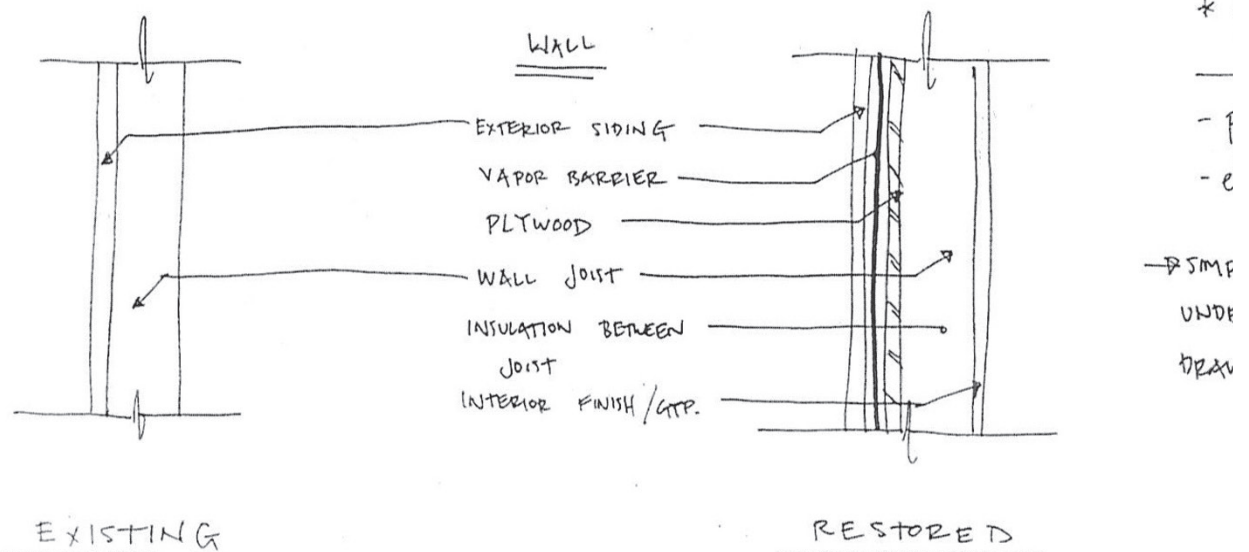 WALL
EXTERIOR SIDING
VAPOR BARRIER
PLYWOOD
WALL JOIST
INSULATION BETWEEN
JOIST
INTERIOR FINISH/GYP.
EXISTING
RESTORED
*
-
-
UNDE
DRAW